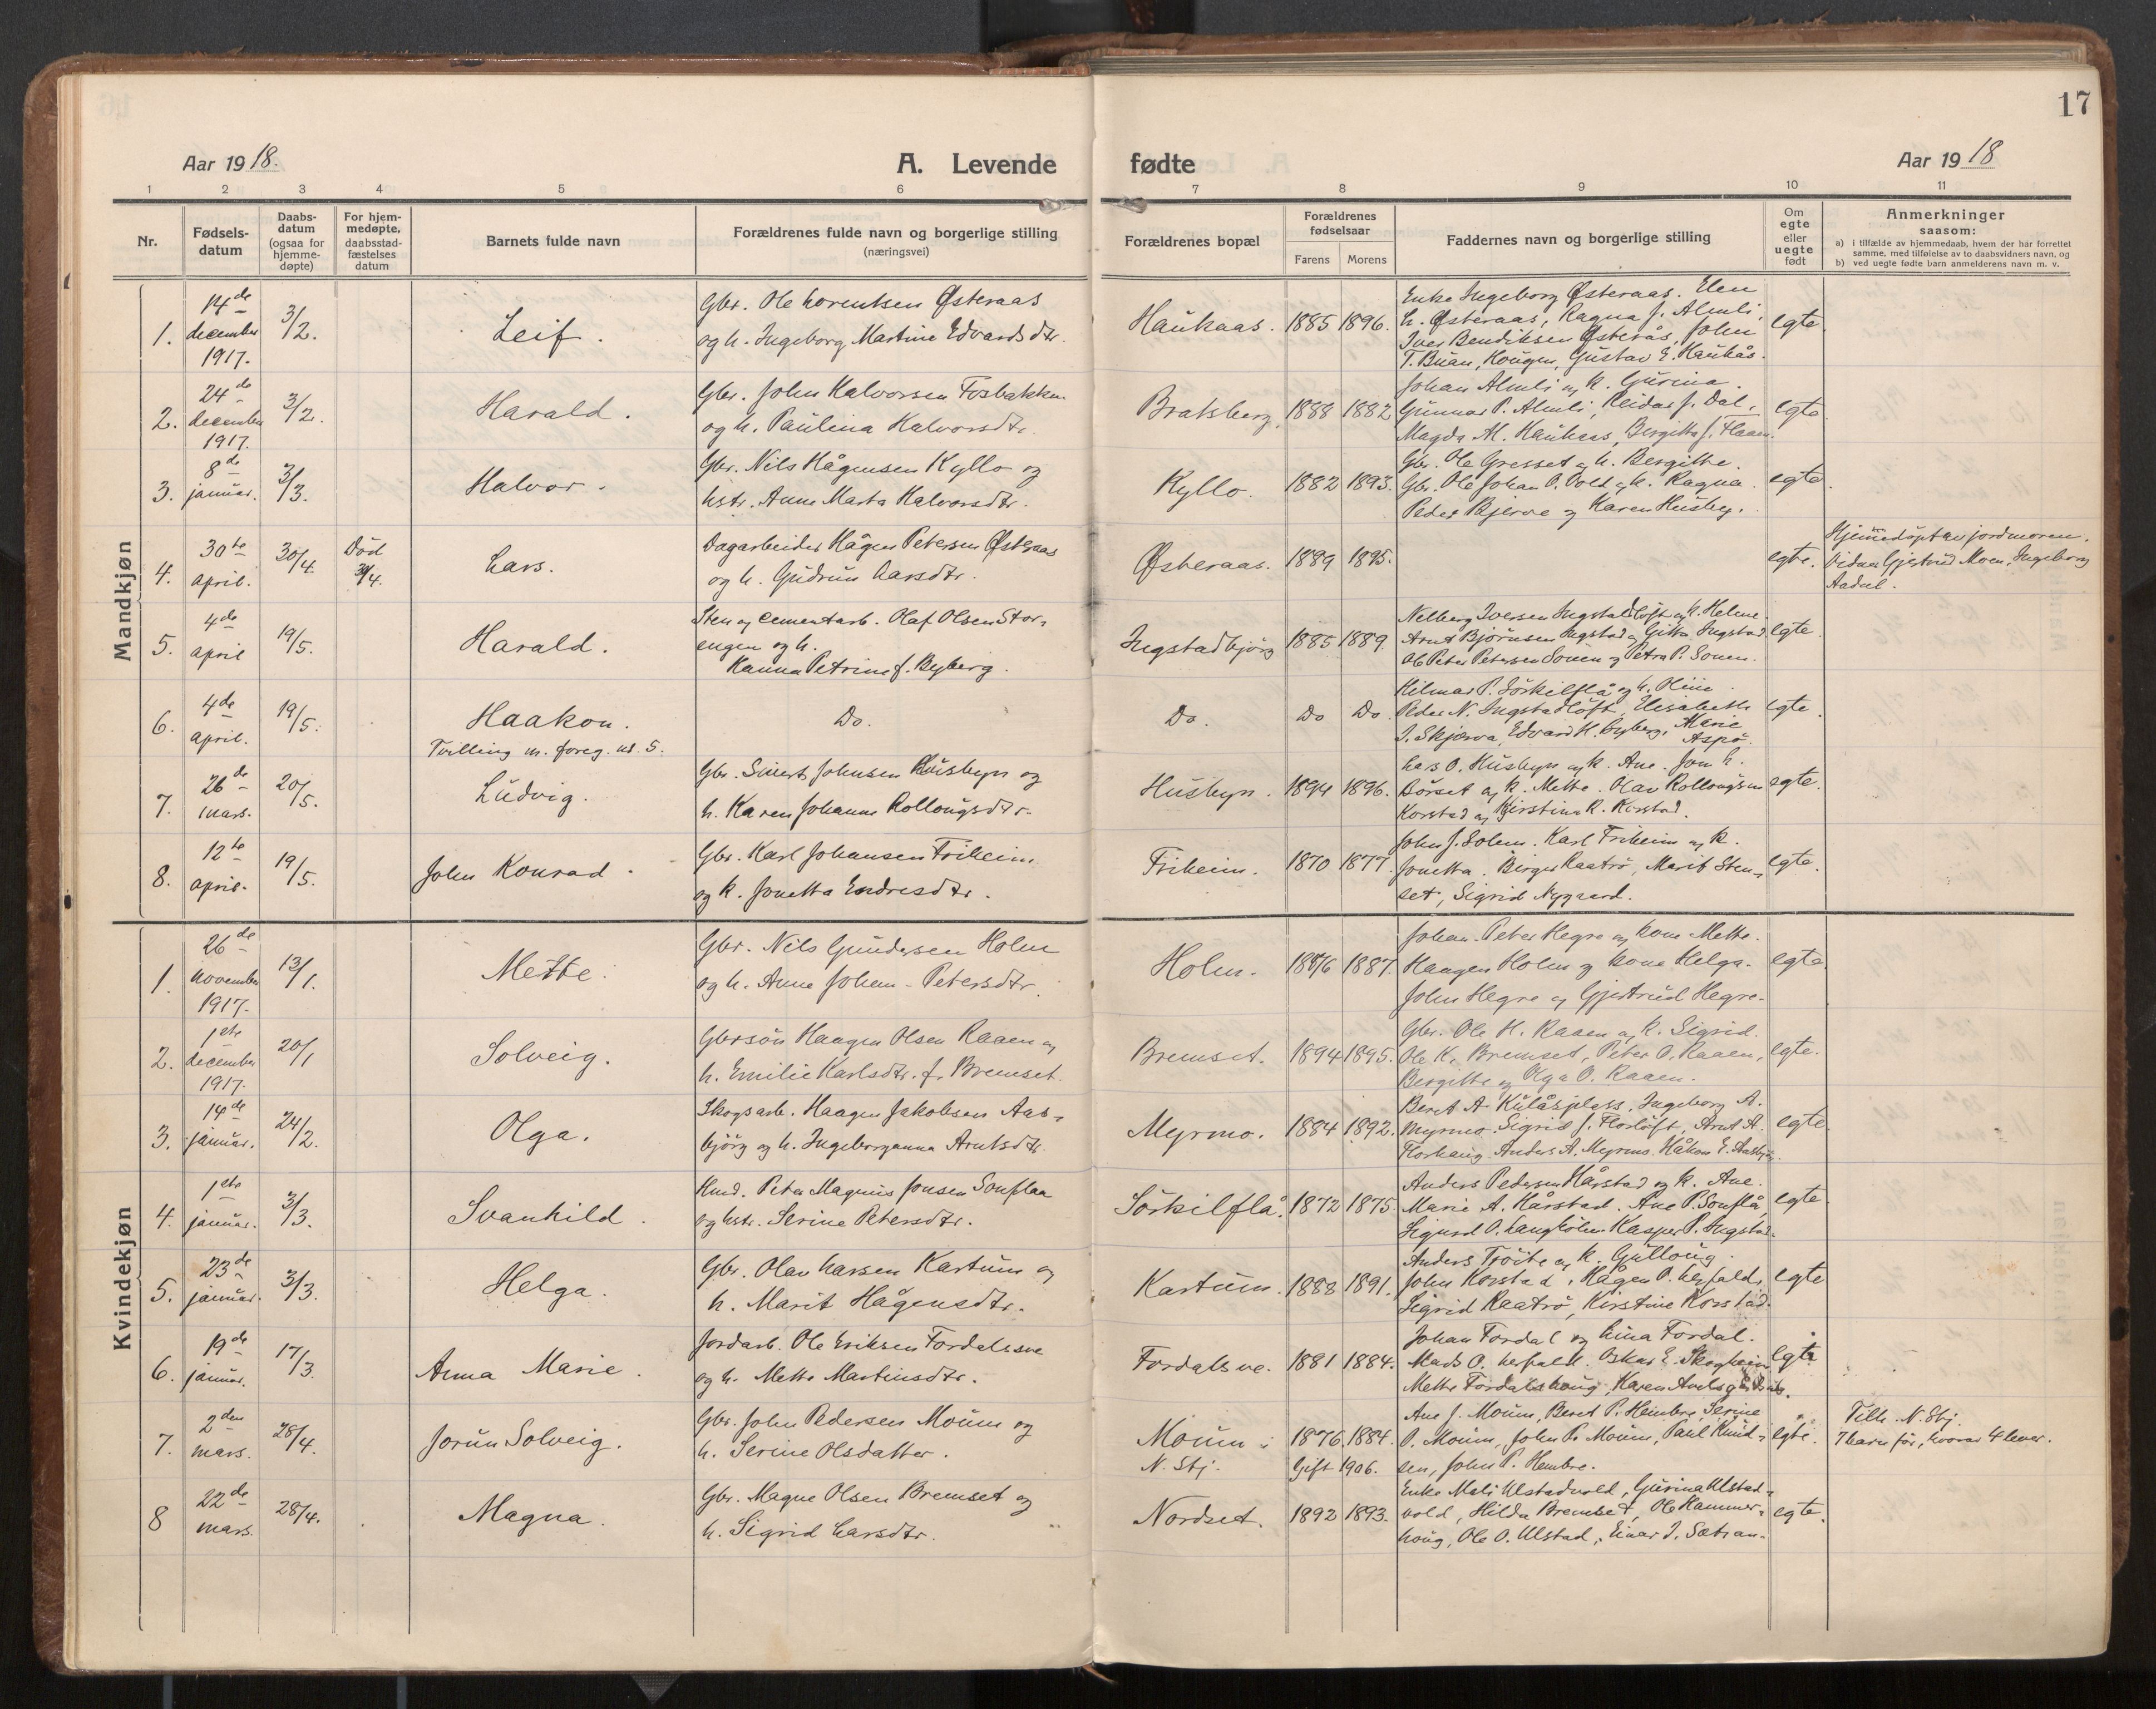 17
Aar 1918.
A. Levende fødte
Aar 1918
1 2 3 4 5 6 7 8 9 10 11
Nr.
Fødsels-
datum
Daabs-
datum
(ogsaa for
hjemme-
døpte)
For hjem-
medøpte,
daabsstad-
fæstelses
datum
Barnets fulde navn
Forældrenes fulde navn og borgerlige stilling
(næringsvei)
Forældrenes bopæl
Forældrenes
fødselsaar
Farens Morens
Faddernes navn og borgerlige stilling
Om
egte
eller
uegte
født
Anmerkninger
saasom:
a) i tilfælde av hjemmedaab, hvem der har forrettet
samme, med tilføielse av to daabsvidners navn, og
b) ved uegte fødte barn anmelderens navn m. v.
Mandkjøn
1.
14de
december
1917.
3/2.
Leif.
Gbr. Ole Lorentsen Østeraas
og h. Ingeborg Martine Edvardsdtr.
Haukaas. 1885 1896.
Enke Ingeborg Østeraas. Elen
L. Østeraas, Ragna J. Almli,
Iver Bendiksen Østerås, John
T. Buan, Hougen, Gustav E. Haukås.
egte.
2.
24de
december
1917.
3/2.
Harald.
Gbr. John Halvorsen Fosbakken
og h. Paulina Halvorsdtr.
Bratsberg. 1888 1882
Johan Almli og k. Gurina.
Gunnar P. Almli, Reidar J. Dal,
Magda M. Haukaas, Bergitta J. Flaan.
egte.
3.
8de
januar.
3/3.
Halvor.
Gbr. Nils Hågensen Kyllo og
hstr. Anne Marta Halvorsdtr.
Kyllo. 1882 1893.
Gbr. Ole Gresset og h. Bergitte.
Gbr. Ole Johan O. Vold og k. Ragna.
Peder Bjerve og Karen Husby.
egte.
4.
30te
april.
30/4.
Død
30/4.
Lars.
Dagarbeider Hågen Petersen Østeraas
og h. Gudrun Larsdtr.
Østeraas. 1889 1895.
egte.
Hjemmedøpt av jordmoren.
Vidner Gjertrud Moen, Ingeborg
Aadal.
5.
4de
april
19/5.
Harald.
Sten og cementarb. Olaf Olsen Stor-
engen og h.
Hanna Petrine f. Byberg.
Ingstadbjørg 1885 1889.
Nelberg Iversen Ingstadløft og k. Helene.
Arnt Bjørnsen Ingstad og Gitta Ingstad
Ole Peter Petersen Sonen og Petra P. Sonen.
egte.
6.
4de
april.
19/5.
Haakon.
Tvilling m. foreg. nr. 5.
Do.
Do. Do Do.
Hilmar P. Sörkilflå og h. Oline.
Peder N. Ingstadløft, Elisabeth
J. Skjerva, Edvard H. Byberg, Marie
Aspö.
egte.
7.
26de
mars.
20/5.
Ludvig.
Gbr. Sivert Johnsen Husbyn og
h. Karen Johanna Rollougsdtr.
Husbyn. 1894 1896.
Lars O. Husbyn og k. Ane. Jon h.
Börset og k. Mette. Olav Rollougsen
Korstad og Kirstina R. Korstad.
egte.
8.
12te
april.
19/5.
John Konrad.
Gbr. Karl Johansen Friheim
og k. Jonetta Endresdtr.
Friheim. 1870 1877.
John J. Solem. Karl Friheim og k.
Jonetta. Birger Raatrö, Marit Sten-
set, Sigrid Nygaard.
egte.
Kvindekjøn
1.
26de
november
1917.
13/1.
Mette.
Gbr. Nils Gundersen Holm
og h. Anne Johan-Petersdtr.
Holm. 1876 1887.
Johan-Peter Hegre og kone Mette.
Haagen Holm og kone Helga.
John Hegre og Gjertrud Hegre.
egte.
2.
1ste
december
1917.
20/1
Solveig.
Gbrsön Haagen Olsen Raaen og
h. Emilie Karlsdtr. f. Bremset.
Bremset. 1894 1895.
Gbr. Ole H. Raaen og k. Sigrid.
Ole K. Bremset, Peter O. Raaen,
Bergitte og Olga O. Raaen.
egte.
3.
14de
januar.
24/2.
Olga.
Skogsarb. Haagen Jakobsen Aas-
björg og h. Ingeborganna Arntsdtr.
Myrmo. 1884 1892.
Beret A. Kulåsplass, Ingeborg A.
Myrmo. Sigrid J. Florløft, Arnt A.
Florhaug. Anders A. Myrmo. Håkon E. Aasbjörg.
egte.
4.
1ste
januar.
3/3.
Svanhild.
Hmd. Peter Magnus Jonsen Sonflaa
og hstr. Serine Petersdtr.
Sörkilflå. 1872 1875.
Anders Pedersen Hårstad og k. Ane.
Marie A. Hårstad. Ane P. Sonflå,
Sigurd O. Langholm. Kasper P. Ingstad.
egte.
5.
23de
januar.
3/3.
Helga.
Gbr. Olav Larsen Kartum og
h. Marit Hågensdtr.
Kartum. 1888 1891.
Anders Tröite og k. Gulloug.
John Korstad, Hågen O. Leyfald,
Sigrid Raatrö, Kirstine Korstad.
egte
6.
19de
januar.
17/3.
Anna Marie.
Jordarb. Ole Eriksen Fordalsve
og h. Mette Martinsdtr.
Fordalsve. 1881 1884.
Johan Fordal og Lina Fordal.
Mads O. Leyfald. Oskar E. Skogheim
Mette Fordalshaug, Karen
egte
7.
2den
mars.
28/4.
Jorun Solveig.
Gbr. John Pedersen Moum og
h. Serine Olsdatter.
Moum i
N. Stj. 1876. 1884.
Gift 1906.
Ane J. Moum, Beret P. Hembre, Serine
P. Moum, John P. Moum, Paul Knud-
sen, John P. Hembre.
egte.
Tilh. N. Stj.
7 barn før, hvorav 4 lever.
8
22de
mars.
28/4.
Magna.
Gbr. Magne Olsen Bremset og
h. Sigrid Larsdtr.
Nordset. 1892 1893.
Enke Mali Ulstadvold, Gurina Ulstad-
vold, Hilda Bremset, Ole Hammer-
houg, Ole O. Ulstad, Einar J. Sætran.
egte.